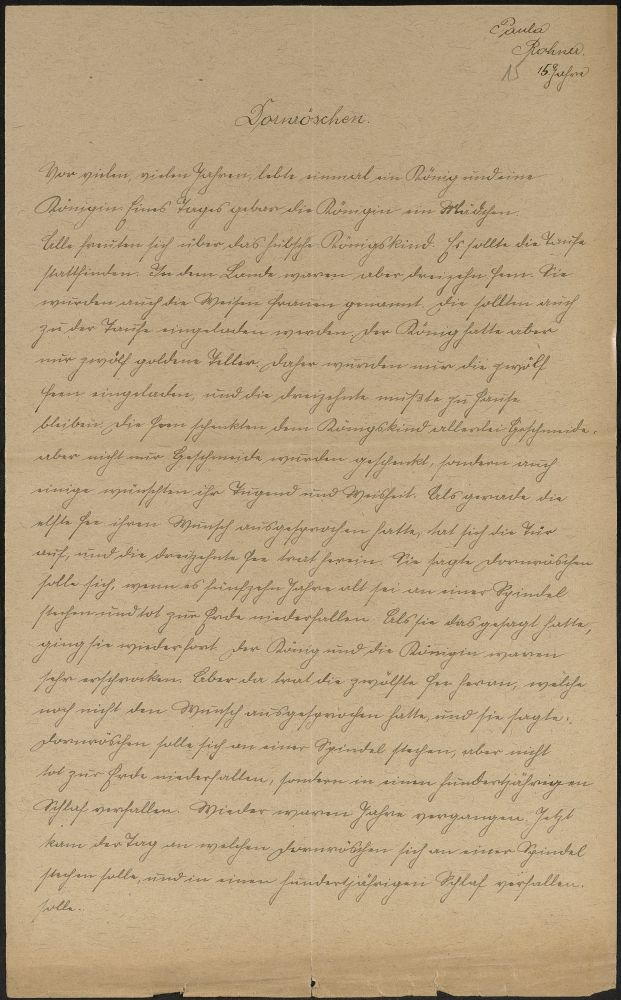 Paula
Rohner.
15 15 Jahre
Dornröschen.
Vor vielen, vielen Jahren, lebte einmal ein König und eine
Königin. Eines Tages gebar die Königin ein Mädchen.
Alle freuten sich über das hübsche Königskind. Es sollte die Taufe
stattfinden. In dem Lande waren aber dreizehn Feen. Sie
wurden auch die Weisen Frauen genannt. Die sollten auch
zu der Taufe eingeladen werden. Der König hatte aber
nur zwölf goldene Teller. Daher wurden nur die zwölf
Feen eingeladen, und die dreizehnte mußte zu Hause
bleiben. Die Feen schenkten dem Königskind allerlei Geschmeide.
aber nicht nur Geschmeide wurden geschenkt, sondern auch
einige wünschten ihr Tugend und Weisheit. Als gerade die
elfte Fee ihren Wunsch ausgesprochen hatte, tat sich die Tür
auf, und die dreizehnte Fee trat herein. Sie sagte Dornröschen
solle sich, wenn es fünfzehn Jahre alt sei an einer Spindel
stechen und tot zur Erde niederfallen. Als sie das gesagt hatte,
ging sie wieder fort. Der König und die Königin waren
sehr erschrocken. Aber da trat die zwölfte Fee heran, welche
noch nicht den Wunsch ausgesprochen hatte, und sie sagte:
Dornröschen solle sich an einer Spindel stechen, aber nicht
tot zur Erde niederfallen, sondern in einen hundertjährigen
Schlaf verfallen. Wieder waren Jahre vergangen. Jetzt
kam der Tag an welchen Dornröschen sich an einer Spindel
stechen solle, und in einen hundertjährigen Schlaf verfallen.
solle.